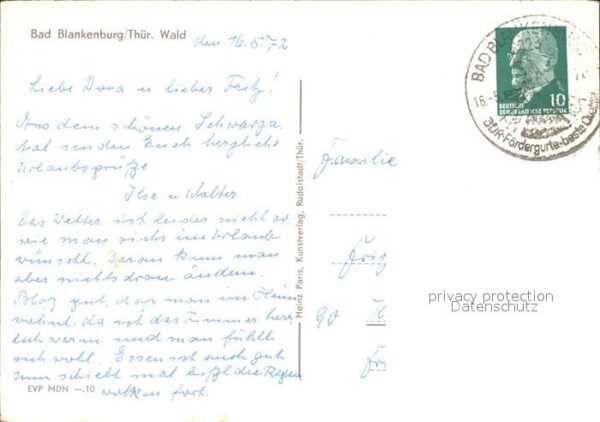 Bad Blankenburg/Thür. Wald
den 16.5.72
Liebe Dora u. lieber Fritz!
Aus dem schönen Schwarza
tal senden Euch herzliche
Urlaubsgrüße
Ilse u. Walter
Das Wetter ist leider nicht so,
wie man sichs im Urlaub
wünscht. Daran kann man
aber nichts dran ändern.
Bloß gut, das man im Heim
wohnt, da ist das Zimmer herr
lich warm und man fühlt
sich wohl. Essen ist auch gut
nun schiebt mal die Regen
wolken fort.
EVP MDN —.10
Heinz Paris, Kunstverlag, Rudolstadt/Thür.
BAD BLANKENBURG
16.-5.
DEUTSCHE
DEMOKRATISCHE REPUBLIK
10
Fördergurte-beste
Familie
Fritz
90
privacy protection
Datenschutz